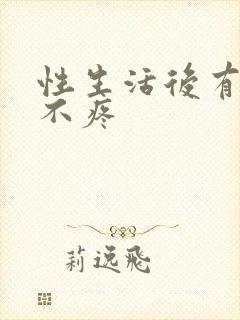 性生活後有
不疼
莉逸飛